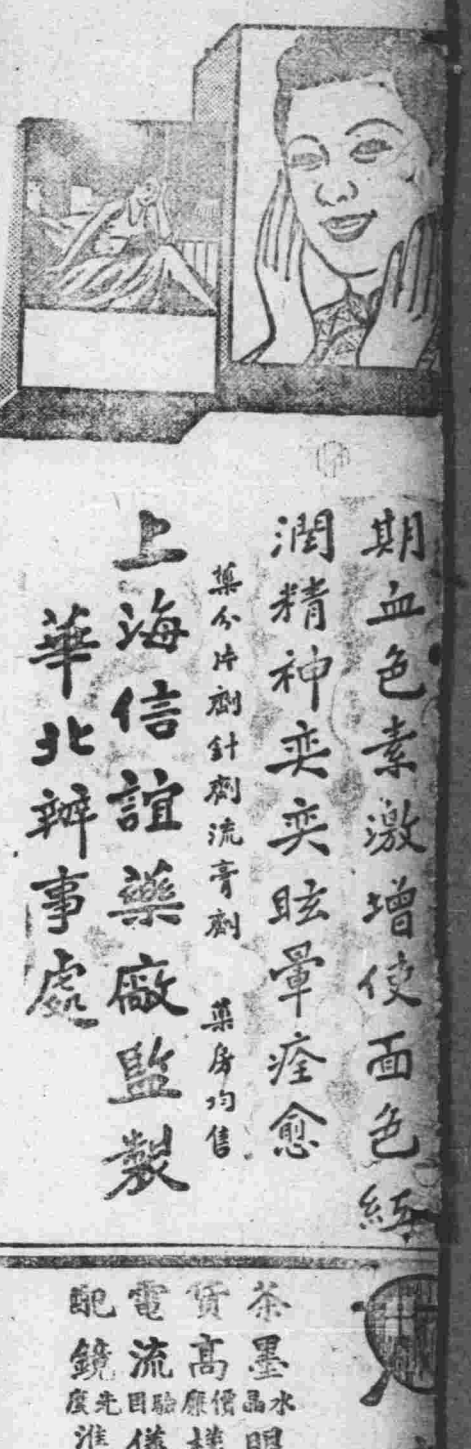 期血色素激增使面色紅
潤精神奕奕眩暈痊愈
藥分片劑針劑流膏劑 藥房均售
上海信誼藥廠監製
華北辦事處
茶墨水晶明
質高價廉樣
電流驗目儀
配鏡先度準